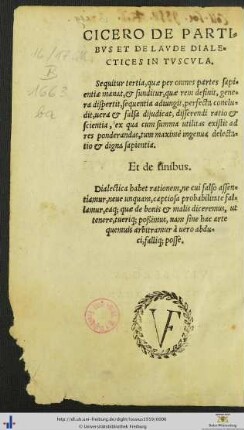 CICERO DE PARTI-
BVS ET DE LAVDE DIALE-
CTICES IN TVSCVLA.
Sequitur tertia, quæ per omnes partes sapi-
entiæ manat, & funditur, quæ rem definit, gene-
ra dispertit, sequentia adiungit, perfecta conclu-
dit, uera & falsa dijudicat, disserendi ratio &
scientia, ex qua cum summa utilitas existit ad
res ponderandas, tum maximè ingenua delecta-
tio & digna sapientia.
Et de finibus.
Dialectica habet rationem, ne cui falso assen-
tiamur, neue unquam captiosa probabilitate fal-
lamur, eaq; quæ de bonis & malis diceremus, ut
tenere, tueriq; possimus, nam sine hac arte
quemuis arbitramur à uero abdu-
ci, falliq; posse.
16/17.
B
1663
ba
VF
© Universitätsbibliothek Freiburg